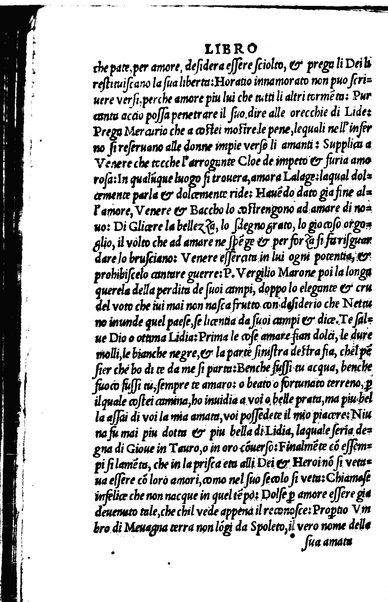 LIBRO
che pate, per amore, desidera essere sciolto, & prega li Dei li
restituiscano la sua libertà: Horatio innamorato non puo scri
uere versi, perche amore piu lui che tutti li altri tormēta: Pur
canta accio possa penetrare il suo, dire alle orecchie di Lide:
Prega Mercurio che a costei mostre le pene, lequali nell'infer
no si reseruano alle donne impie verso li amanti: Supplica a
Venere che tocche l'arrogante Cloe de impeto & furia amo
rosa: In qualūque luogo si trouera, amara Lalage: laqual dol
cemente parla & dolcemente ride: Hauēdo dato gia fine al
l'amore, Venere & Baccho lo costrengono ad amare di no=
uo: Di Glicere la bellezza, lo sdegno grato, lo giocoso orgo=
glio, il volto che ad amare ne spēge & per forza si fa risguar
dare lo brusciano: Venere essercita in lui ogni potentia, &
prohibiscelo cantare guerre: P. Vergilio Marone poi la longa
querela della perdita de suoi campi, doppo lo elegante & cru
del voto che iui mai non nasca frutto con desiderio che Nettu
no inunde quel paese, se licentia da suoi campi & dice. Te sal
ue Dio o ottima Lidia: Prima le cose amare fian dolci, le dure
molli, le bianche negre, & la parte sinistra destra fia, chel pē
sier che ho di te da me si parta: Benche fussi tu acqua, benche
fuoco fussi tu, sempre te amaro: o beato o fortunato terreno, p
il quale costei camina, ho inuidia a voi o belle prata, ma piu bel
la assai di voi la mia amata, voi possedete il mio piacere: Niu
na fu mai piu dotta & piu bella di Lidia, laquale seria de=
gna di Gioue in Tauro, o in oro cōuerso: Finalmēte cō essem
pi si lamēta, che in la prisca eta alli Dei & Heroi nō si veta=
ua essere cō loro amici, como nel suo secolo si veta: Chiamase
infelice che non nacque in quel tēpo: Dolse p amore essere gia
deuenuto tale, che chil vede appena il reconosce: Proptio Vm
bro di Meuagna terra non lōgi da Spoleto, il vero nome della
sua amata